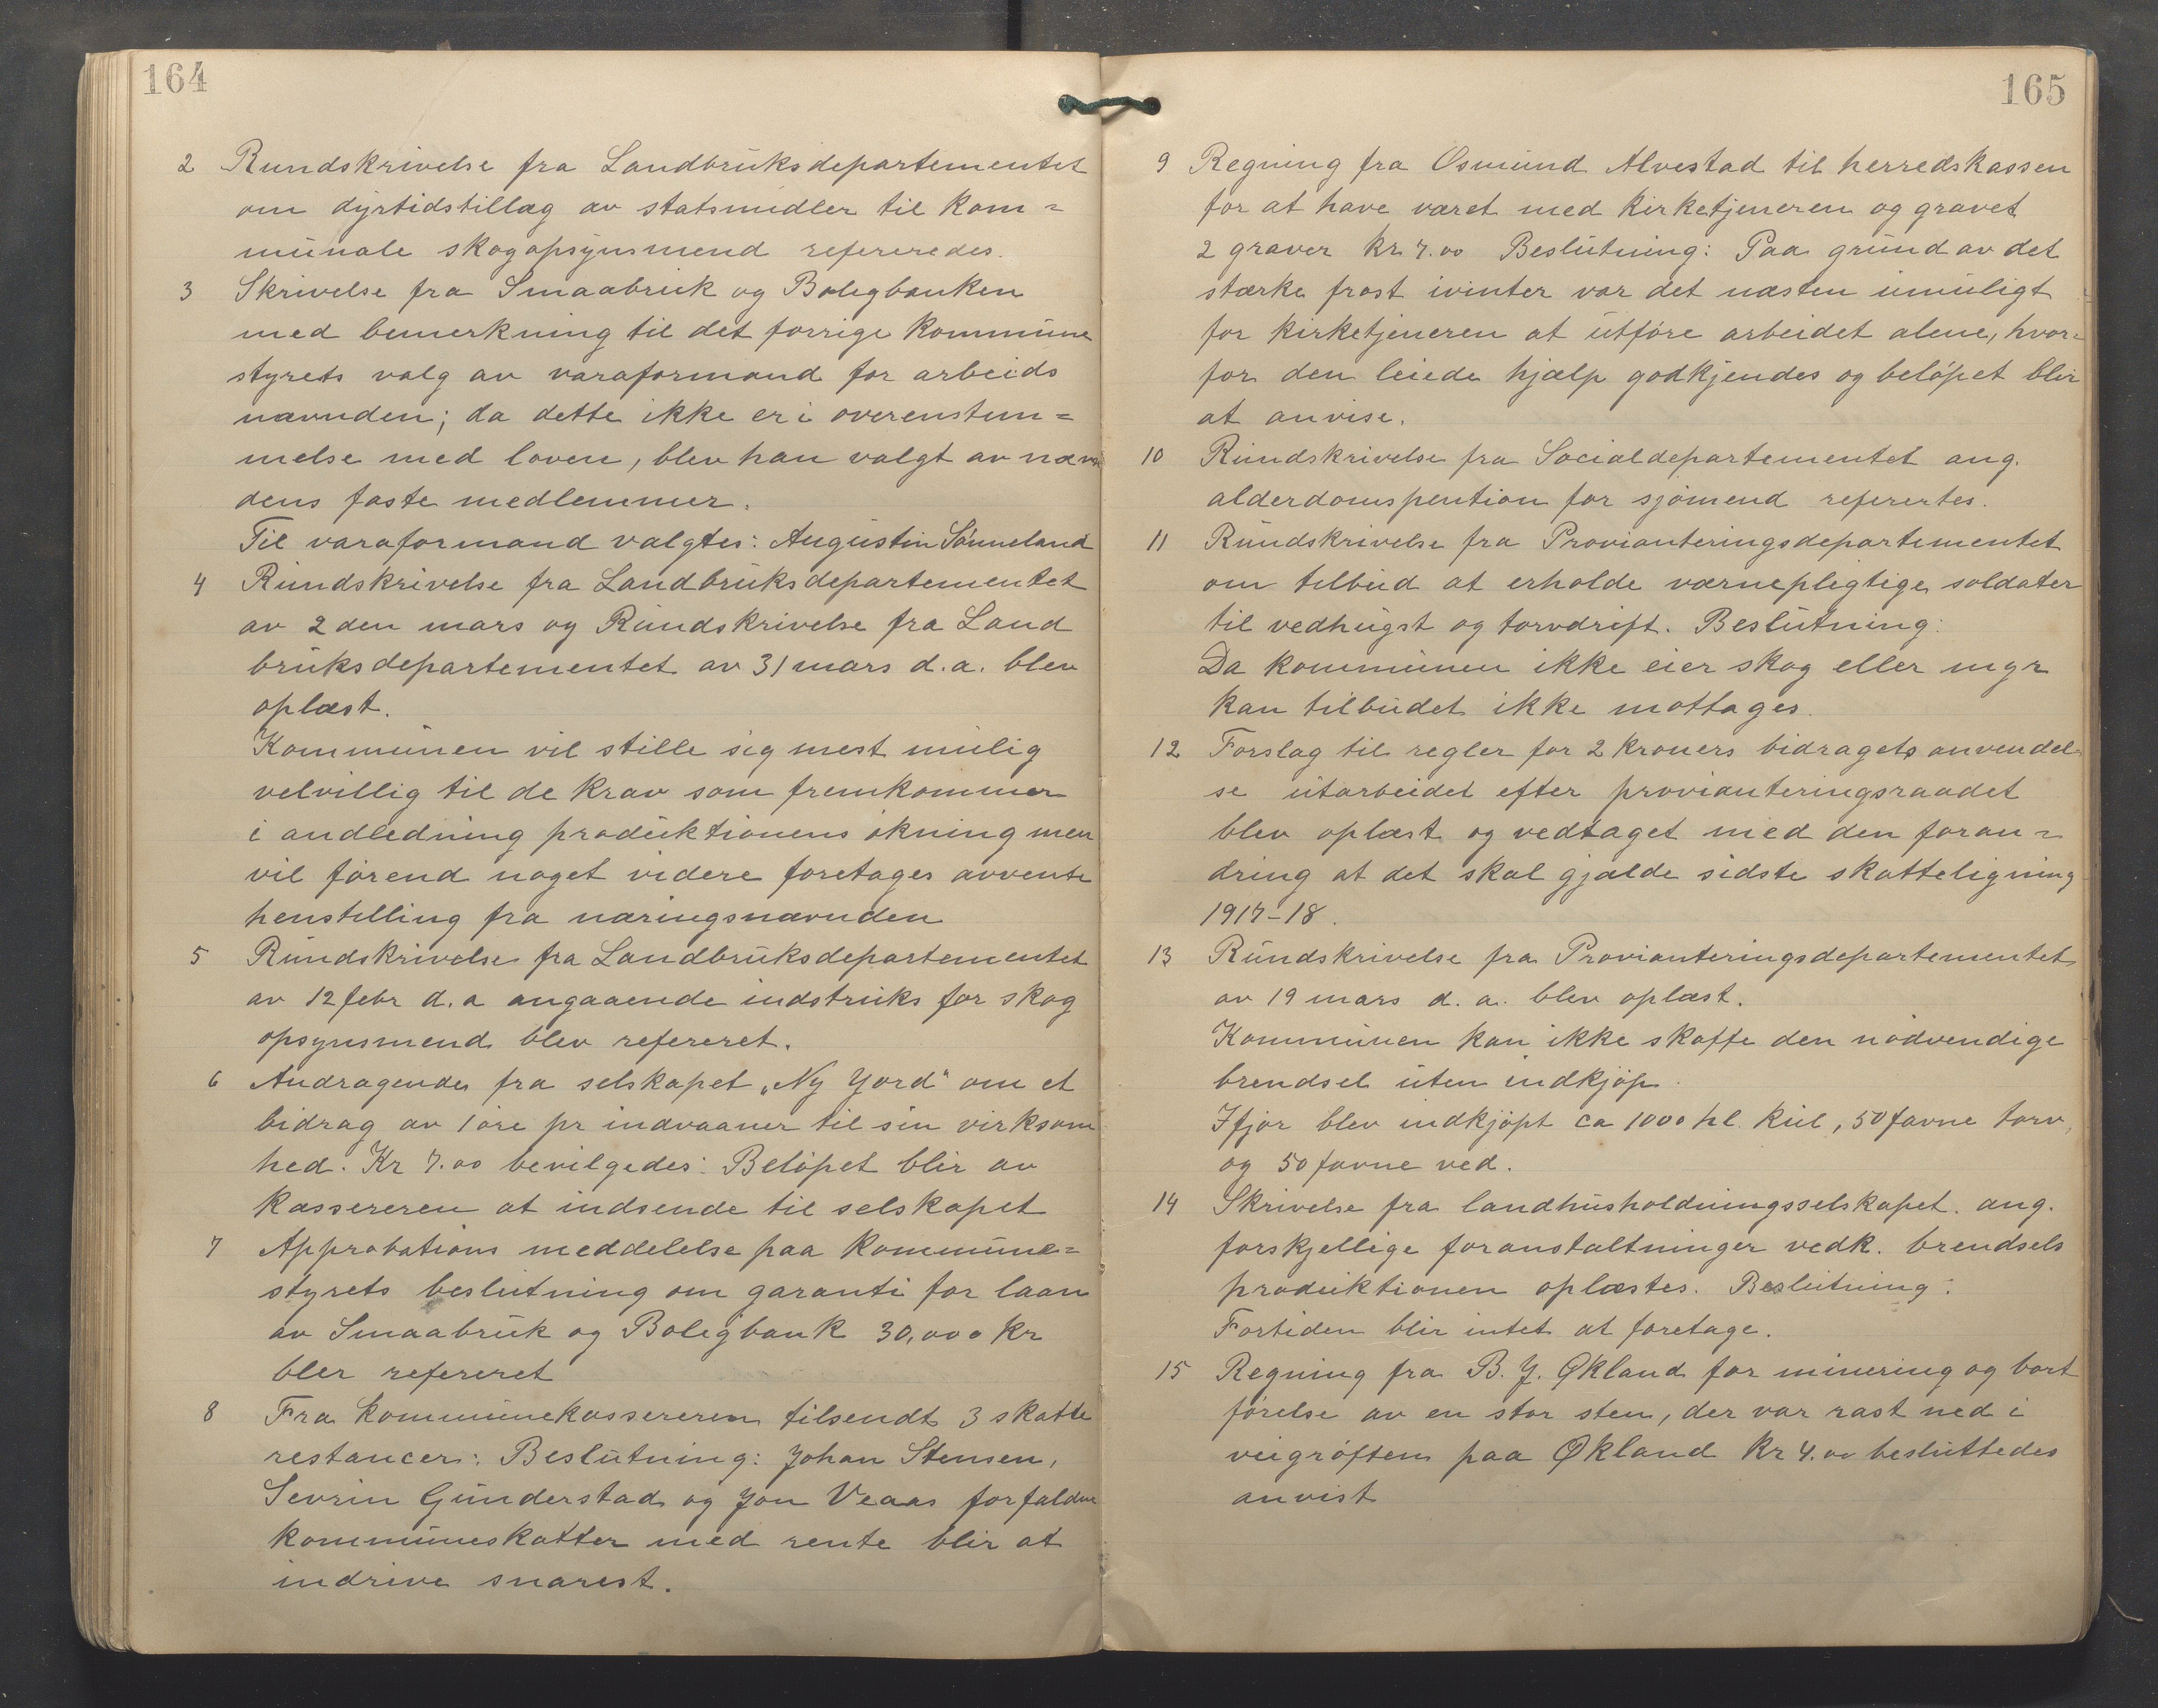 164
2 Rundskrivelse fra Landbruksdepartementet
om dyrtidstillæg av statsmidler til kom=
munale skogopsynsmend refereredes.
3 Skrivelse fra Smaabruk og Boligbanken
med bemerkning til det forrige kommune
styrets valg av varaformand for arbeids
nævnden; da dette ikke er i overenstem=
melse med loven, blev han valgt av nævn
dens faste medlemmer.
Til varaformand valgtes: Augustin Sønneland
4 Rundskrivelse fra Landbruksdepartementet
av 2den mars og Rundskrivelse fra Land
bruksdepartementet av 31 mars d.a. blev
oplæst.
Kommunen vil stille sig mest mulig
velvillig til de krav som fremkommer
i andledning produktionens økning men
vil førend noget videre foretages avvente
henstilling fra næringsnævnden
5 Rundskrivelse fra Landbruksdepartementet
av 12 febr d.a angaaende indstruks for skog
opsynsmend blev refereret.
6 Andragende fra selskapet „Ny Jord" om et
bidrag av 1 øre pr indvaaner til sin virksom
hed. Kr 7.00 bevilgedes: Beløpet blir av
kassereren at indsende til selskapet
7 Approbations meddelelse paa kommune=
styrets beslutning om garanti for laan
av Smaabruk og Boligbank 30,000 kr
bler refereret
8 Fra kommunekassereren tilsendt 3 skatte
restancer: Beslutning: Johan Stensen,
Sevrin Gunderstad og Jon Veaas forfaldne
kommuneskatter med rente blir at
indrive snarest.
165
9 Regning fra Osmund Alvestad til herredskassen
for at have været med kirketjeneren og gravet
2 graver kr. 7.00 Beslutning: Paa grund av det
stærke frost ivinter var det næsten umuligt
for kirketjeneren at utføre arbeidet alene, hvor=
for den leiede hjælp godkjendes og beløpet blir
at anvise.
10 Rundskrivelse fra Socialdepartementet ang.
alderdomspention for sjømend referertes.
11 Rundskrivelse fra Provianteringsdepartementet
om tilbud at erholde værnepligtige soldater
til vedhugst og torvdrift. Beslutning:
Da kommunen ikke eier skog eller myr
kan tilbudet ikke mottages.
12 Forslag til regler for 2 kroners bidragets anvendel
se utarbeidet efter provianteringsraadet
blev oplæst og vedtaget med den foran=
dring at det skal gjælde sidste skatteligning
1917-18.
13 Rundskrivelse fra Provianteringsdepartementet
av 19 mars d. a. blev oplæst.
Kommunen kan ikke skaffe den nødvendige
brendsel uten indkjøp.
Ifjor blev indkjøpt ca 1000 hl. kul, 50 favne torv,
og 50 favne ved.
14 Skrivelse fra landhusholdningsselskapet. ang.
forskjellige foranstaltninger vedk. brendsels
produktionen oplæstes. Beslutning:
Fortiden blir intet at foretage.
15 Regning fra B. J. Økland for minering og bort
førelse av en stor sten, der var rast ned i
veigrøften paa Økland Kr 4.00 besluttedes
anvist